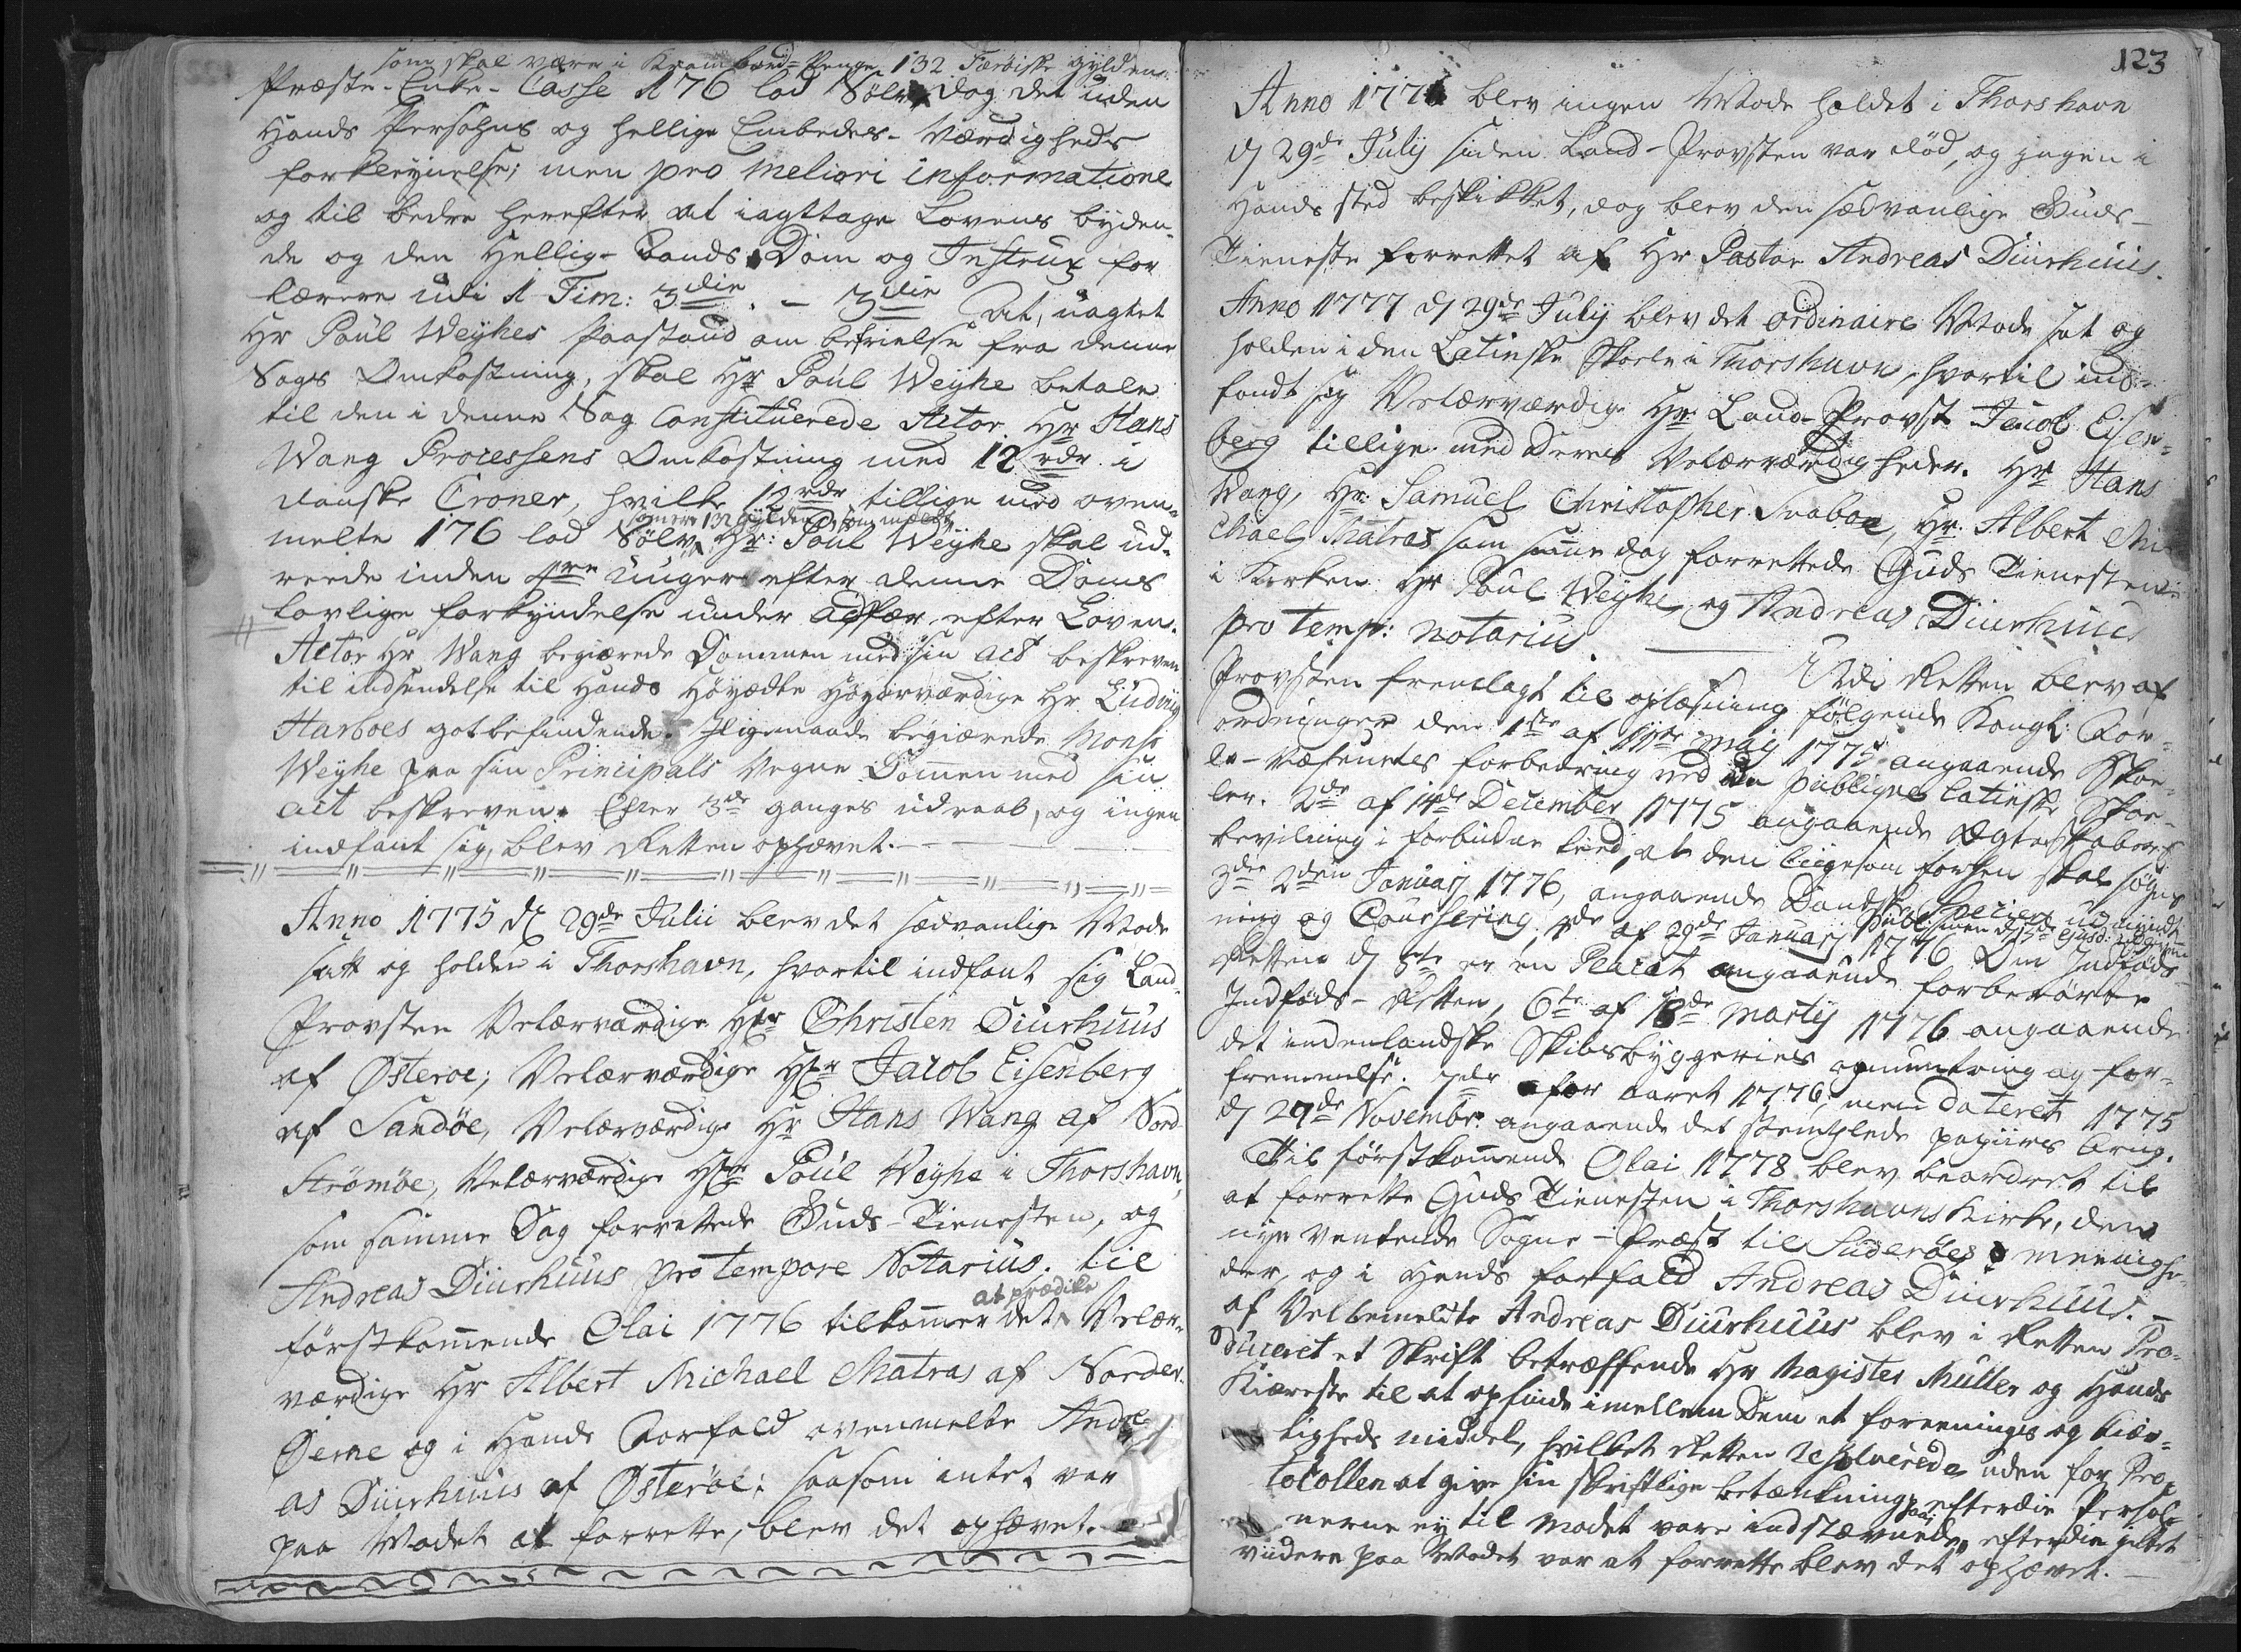 som skal være i Kramboed-Penge 132 Færøiske Gylden
Præste-Enke-Casse 176 lod Sølv, dog det uden
Hands Persohns og hellige Embedes-Værdigheds
forkleynelse; men pro meliori informatione
og til bedre herefter at iagttage Lovens byden-
de og den Hellig-Aands Dom og Instrux for
lærere udi 1 Tim: 3die - 3die At, uagtet
Hr Poul Weyhes Paastand om befrielse fra denne
Sags Omkostning, skal Hr Poul Weyhe betale
til den i denne Sag Constituerede Actor Hr Hans
Wang Processens Omkostning med 12 rdr i
danske Croner, hvilke 12 rdr tillige med oven-
som er 132 Gylden som meldt
melte 176 lod Sølv Hr: Poul Weyhe skal ud-
reede inden 4re uuger efter denne Doms
lovlige forkyndelse under adfær efter Loven.
Actor Hr Wang begiærede Dommen med sin act beskreven
til indsendelse til Hands Höyædle Höyærværdige Hr Ludvig
Harboes gotbefindende. Iligemaade begiærede Monsr
Weyhe paa sin Principals Vegne Domen med sin
act beskreven. Efter 3de ganges udraab, og ingen
indfant sig, blev Retten ophævet.
Anno 1775 d 29de Julii blev det sædvanlige Mode
satt og holden i Thorshavn, hvortil indfant sig Land-
Provsten Velærværdige Hr Christen Diurhuus
af Østeroe; Velærværdige Hr Jacob Eisenberg
af Sandöe, Velærværdige Hr Hans Wang af Nord-
Strömöe, Velærværdige Hr Poul Weyhe i Thorshavn,
som samme Dag forrettede Guds-Tienesten, og
Andreas Diurhuus pro tempore Notarius. til
at prædike
förstkomende Olai 1776 tilkomer det Velær-
værdige Hr Albert Michael Matras af Norder-
Øerne og i Hands Forfald ovenmelte Andre-
as Diurhuus af Østeröe; saasom intet var
paa Modet at forrette, blev det ophævet.
123
Anno 1776 blev ingen Mode holdet i Thorshavn
d 29de July siden Land-Provsten var død, og ingen i
Hands sted beskikket, dog blev den sædvanlige Guds-
Tieneste forrettet af Hr Pastor Andreas Diurhuus.
Anno 1777 d 29de July blev det ordinaire Mode sat og
holden i den Latinske Skoele i Thorshavn, hvortil ind-
fandt sig Velærværdige Hr Land-Provst Jacob Eisen-
berg tillige med Deres Velærværdigheder. Hr Hans
Wang, Hr Samuel Christopher Svaboe, Hr. Albert Mi-
chael Matras som samme dag forrettede Guds Tienesten
i Kirken Hr Poul Weyhe, og Andreas Diurhuus
pro temp: notarius. Udi Retten blev af
Provsten fremlagt til oplæsning følgende Kongl: For-
ordninger den 1ste af 11te Maij 1775 angaaende Skoe-
le-Væsenetes forbedring ved de publique latinske Skoe-
ler. 2de af 14de December 1775 angaaende Ægteskabers
bevilning i forbudne leed, at den liigesom forhen skal søges
3die 2den Januarj 1776, angaaende Danske Species udmynt-
ning og Courssering, 4de af 29de Januarj 1776 Om Indföds-
publ: men d 15de Ejusd: udgiven
Retten d 5te er en Placat angaaende forberørte
Indföds-Retten, 6te af 18de Martij 1776 angaaende
det indenlandske Skibsbyggeries opmuntring og for-
fremmelse. 7de for Aaret 1776, men dateret 1775
d 27de Novembr: angaaende det stemplede papiirs brug.
Til förstkomende Olai 1778 blev beordret til
at forrette Guds Tienesten i Thorshavns Kirke, den
nye ventende Sogne-Præst til Suderöes menighe-
der, og i Hands forfald Andreas Diurhuus.
af Velbemeldte Andreas Diurhuus blev i Retten Pro-
duceret et Skrift betræffende Hr Magister Müller og Hands
Kiæreste til at opfinde imellem Dem et foreenings og kiær-
ligheds middel, hvilket Retten resolverede uden for Pro-
tocollen at give sin skriftlige betænkning paa, efterdie Perso-
nerne ey til Modet vare indstævnede, efterdie intet
viidere paa Modet var at forrette blev det ophævet.